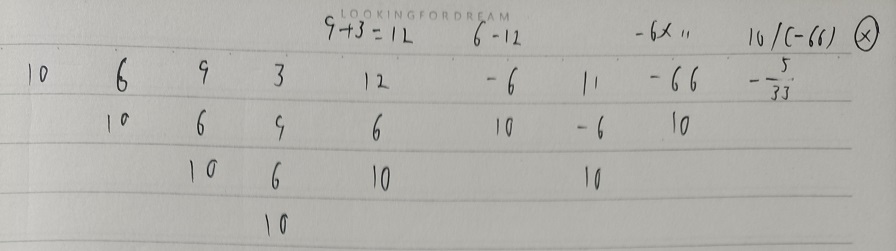 LOOKINGFORDREAM
9+3=12 6-12 -6x11 10/(-66) ⊗
10 6 9 3 12 -6 11 -66 -5/33
10 6 9 6 10 -6 10
10 6 10 10
10